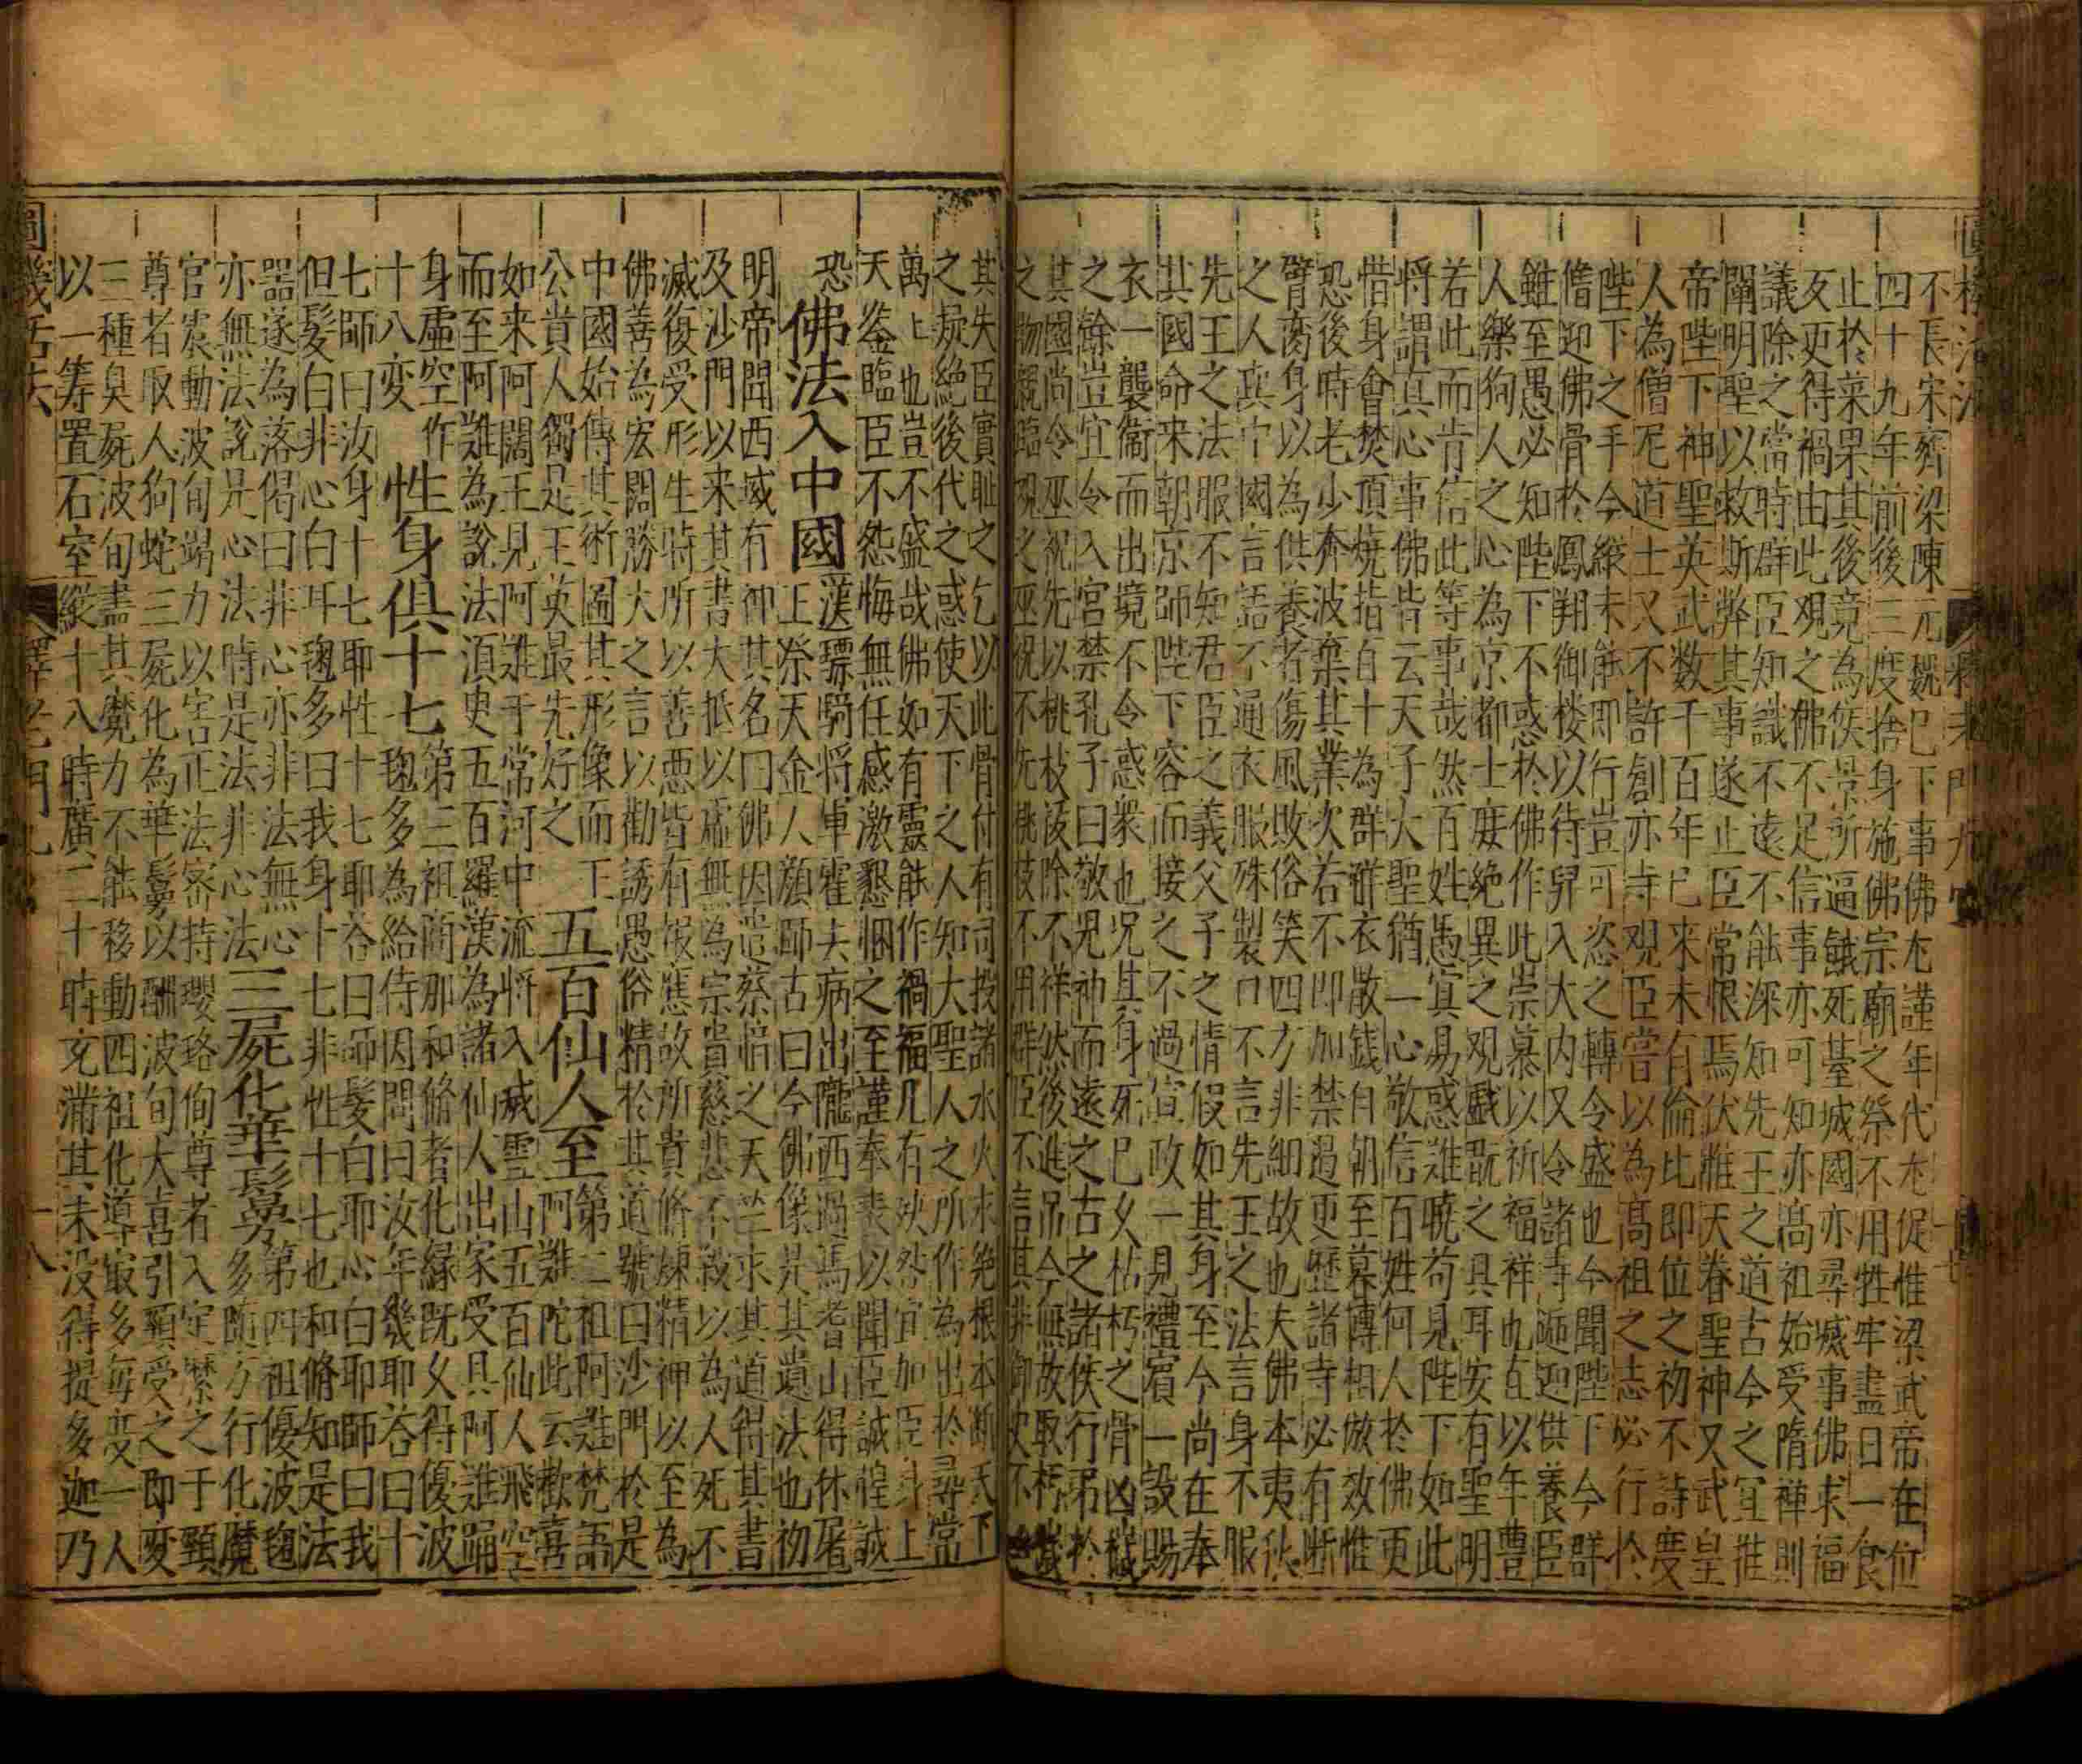 圓機活法 釋老門九
不長宋齊梁陳元魏已下事佛尤謹年代尤促惟梁武帝在位
四十九年前後三度捨身施佛宗廟之祭不用牲牢盡日一食
止於菜果其後竟為侯景所逼餓死䑓城國亦尋滅事佛求福
反更得禍由此观之佛不足信事亦可知亦高祖始受隋禅則
議除之當時群臣知識不遠不能深知先王之道古今之宜推
闡明聖以救斯弊其事遂止臣常恨焉伏惟天眷聖神又武皇
帝陛下神聖英武数千百年已来未有倫比即位之初不詩度
人為僧尼道士又不許創亦寺观臣嘗以為高祖之志必行於
陛下之手今縱未能即行豈可恣之轉令盛也今聞陛下今群
僧迎佛骨於鳳翔御楼以待舁入大内又令諸寺逓迎供養臣
雖至愚必知陛下不惑於佛作此崇慕以祈福祥也直以年豊
人樂狥人之心為京都士庶絶異之观戯翫之具耳安有聖明
若此而肯信此等事哉然百姓愚冥易惑難曉苟見陛下如此
将謂真心事佛皆云天子大聖猶一心敬信百姓何人於佛更
惜身會焚頂焼指百十為群觧衣散銭自朝至暮傳相倣效惟
恐後時老少奔波棄其業次若不即加禁遏更歷諸寺必有断
臂臠身以為供養者傷風敗俗笑四方非細故也夫佛本夷狄
之人與中國言語不通衣服殊製口不言先王之法言身不服
先王之法服不知君臣之義父子之情假如其身至今尚在奉
其國命来朝京師陛下容而接之不過宣政一見禮賓一設賜
衣一襲衛而出境不令惑衆也况其身死已久枯朽之骨凶穢
之餘豈宜令入宮禁孔子曰敬鬼神而遠之古之諸侯行弔於
其國尚令巫祝先以桃枝祓除不祥然後進吊今無故取朽穢
之物親臨观之巫祝不先桃枝不用群臣不言其非御史不
其失臣實耻之乞以此骨付有司投諸水火永絶根本断天下
之疑絶後代之惑使天下之人知大聖人之所作為出於尋常
萬上也豈不盛哉佛如有靈能作禍福凡有殃咎宜加臣身上
天鉴臨臣不怨悔無任感激懇悃之至謹奉表以聞臣誠惶誠
恐 佛法入中國 漢驃騎将軍霍去病出隴西過焉耆山得休屠
王祭天金人顔師古曰今佛像是其遺法也初
明帝聞西域有神其名曰佛因遣蔡愔之天竺求其道得其書
及沙門以来其書大抵以虚無為宗貴慈悲不殺以為人死不
滅復受形生時所以善悪皆有報應故所貴修煉精神以至為
佛善為宏闊勝大之言以勸誘愚俗精於其道號曰沙門於是
中國始傳其術圖其形像而王
公貴人獨楚王英最先好之 五百仙人至 第二祖阿難梵語
阿難陀此云歡喜
如来阿闍王見阿難于常河中流将入滅雪山五百仙人飛空
而至阿難為說法須臾五百羅漢為諸仙人出家受具阿難踊
身虚空作
十八变 性身俱十七 第三祖商那和修者化縁既久得優波
毱多為給侍因問曰汝年幾耶答曰十
七師曰汝身十七耶性十七耶答曰師髮白耶心白耶師曰我
但髮白非心白耳毱多曰我身十七非性十七也和修知是法
器遂為落偈曰非心亦非法無心
亦無法說是心法時是法非心法 三屍化華鬘 第四祖優波毱
多隨方行化魔
官震動波旬竭力以害正法密持瓔珞伺尊者入定縻之于頸
尊者取人狗蛇三屍化為華鬘以酬波旬大喜引頸受之即変
三種臭屍波旬盡其魔力不能移動四祖化導最多每度一人
以一筹置石室縱十八時廣二十時充滿其未没得提多迦乃
圓機活法 釋老門九 十八